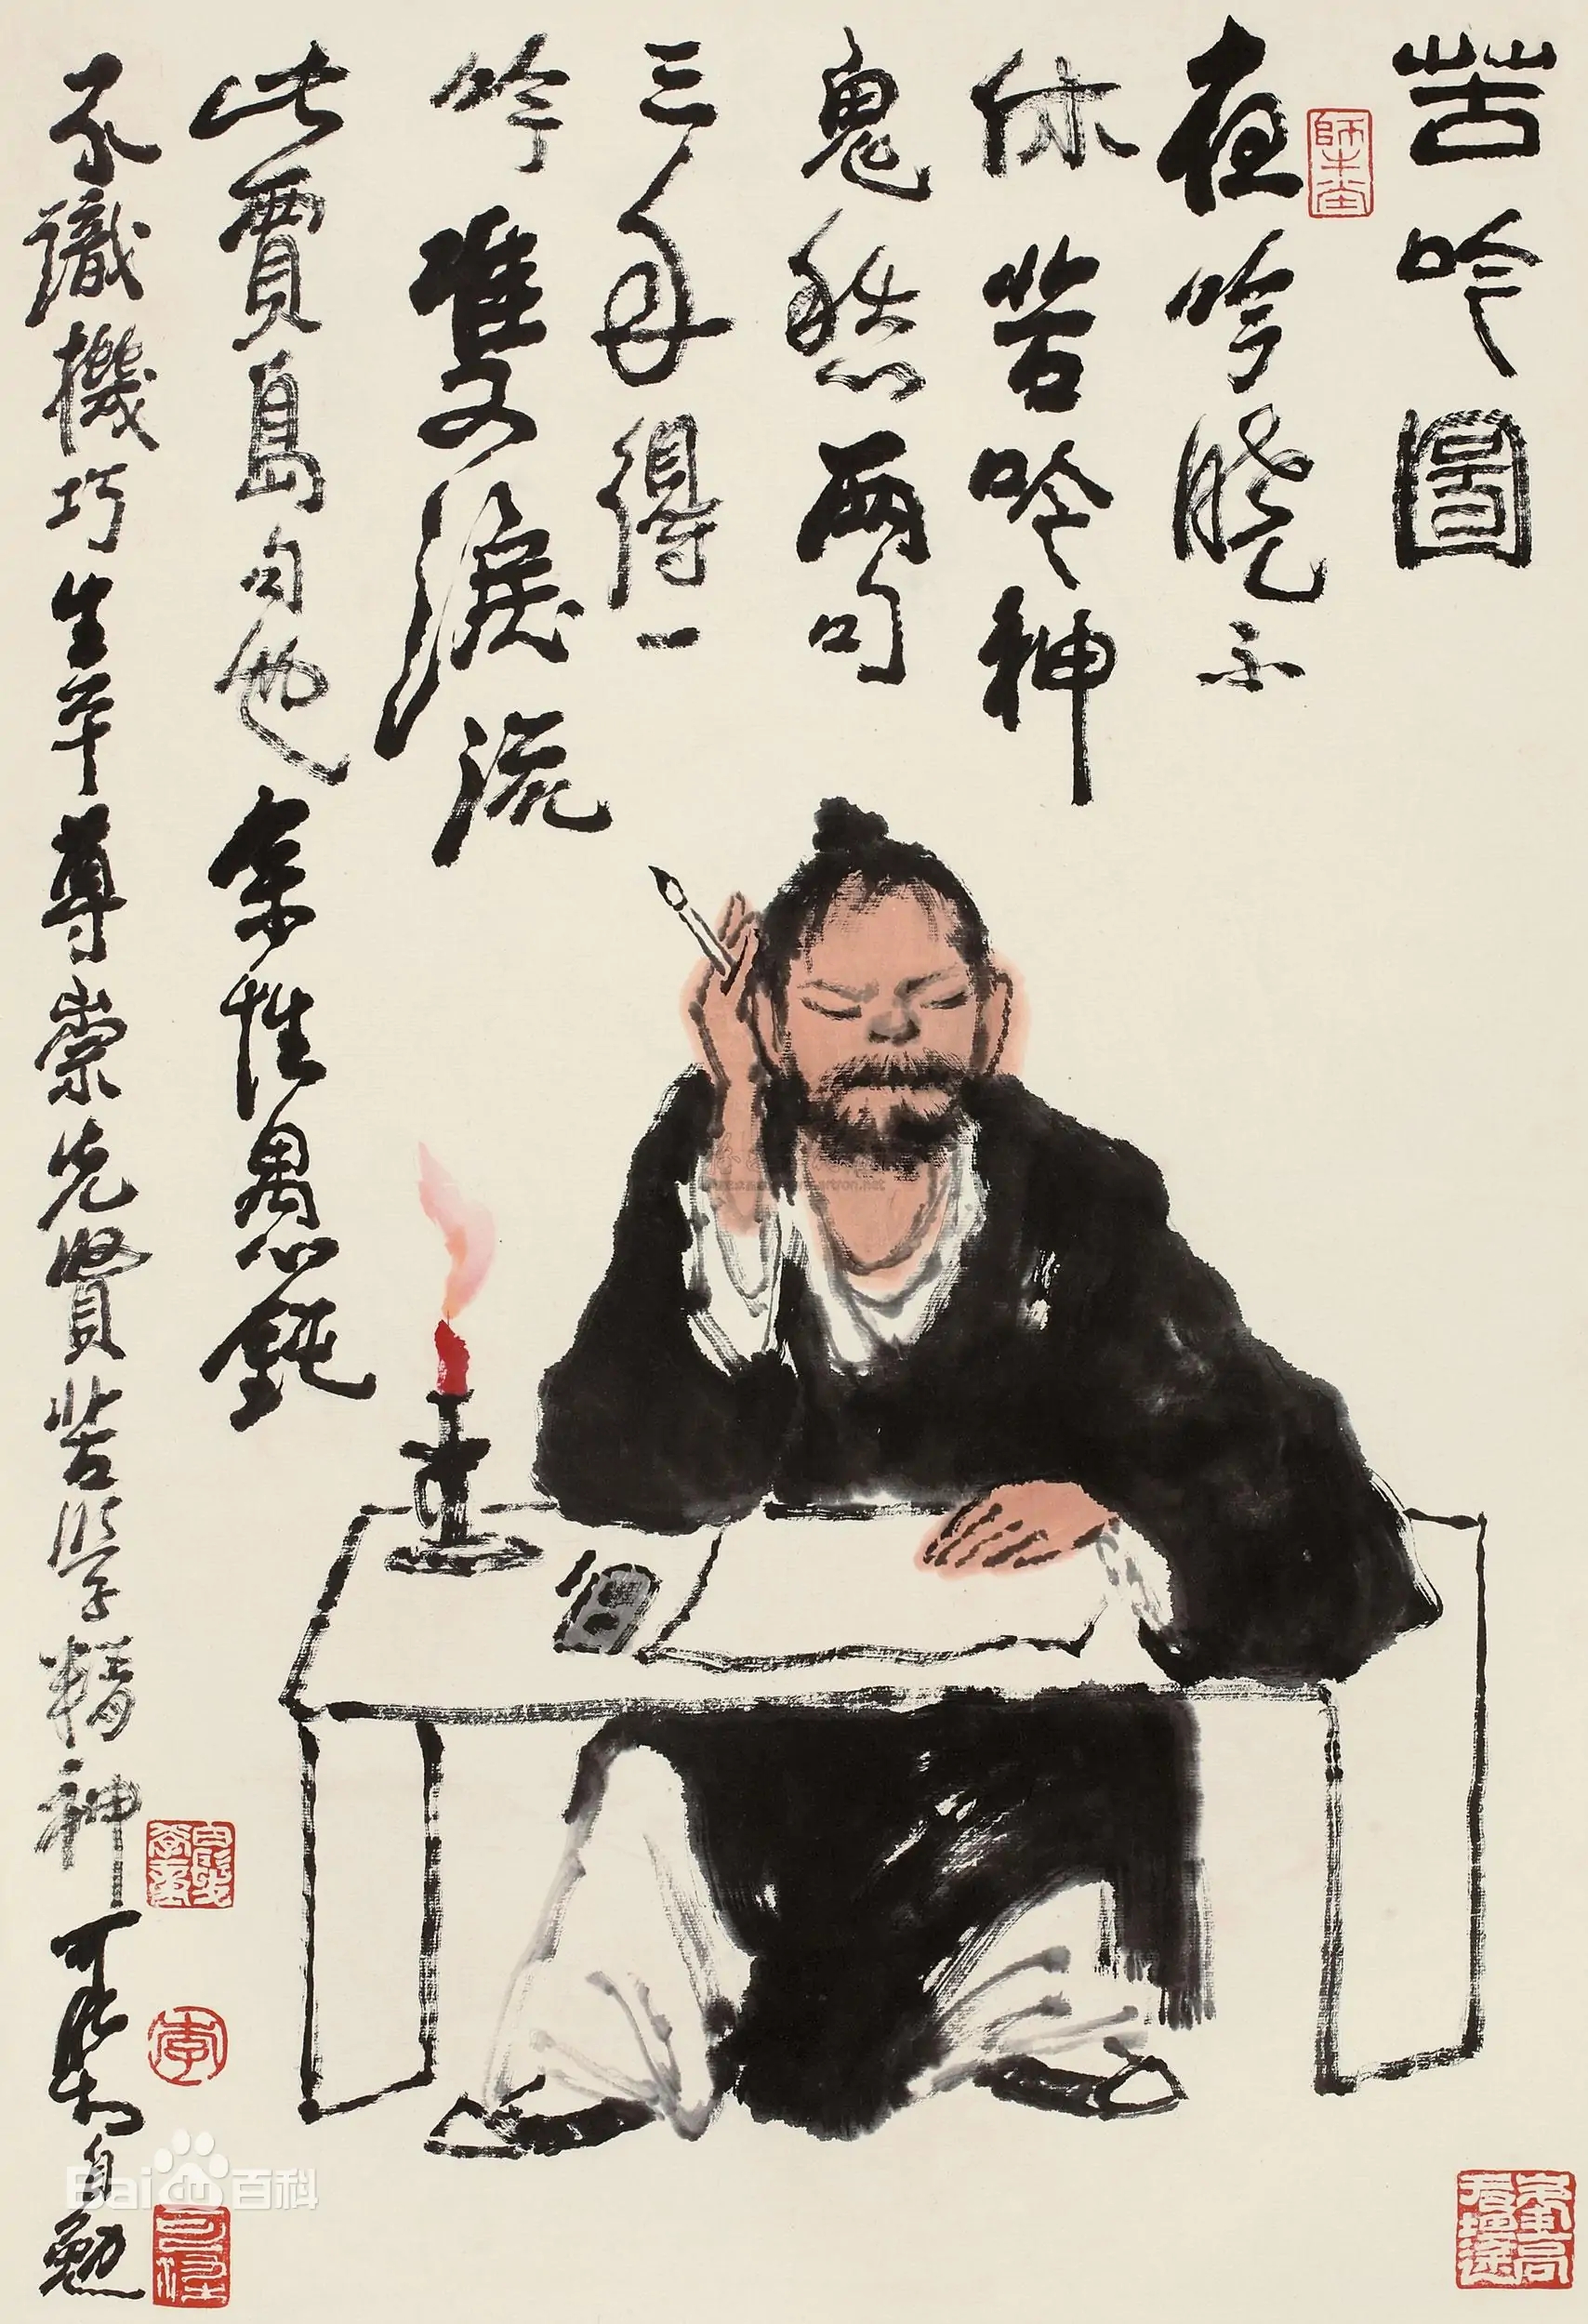 苦吟圖
夜吟曉不
休苦吟神
鬼愁兩句
三年得一
吟雙淚流
此賈島句也余性愚鈍
不識機巧生平尊崇先賢苦學精神可染自勉
師牛堂
白髮學童
李
可染
Baidu百科